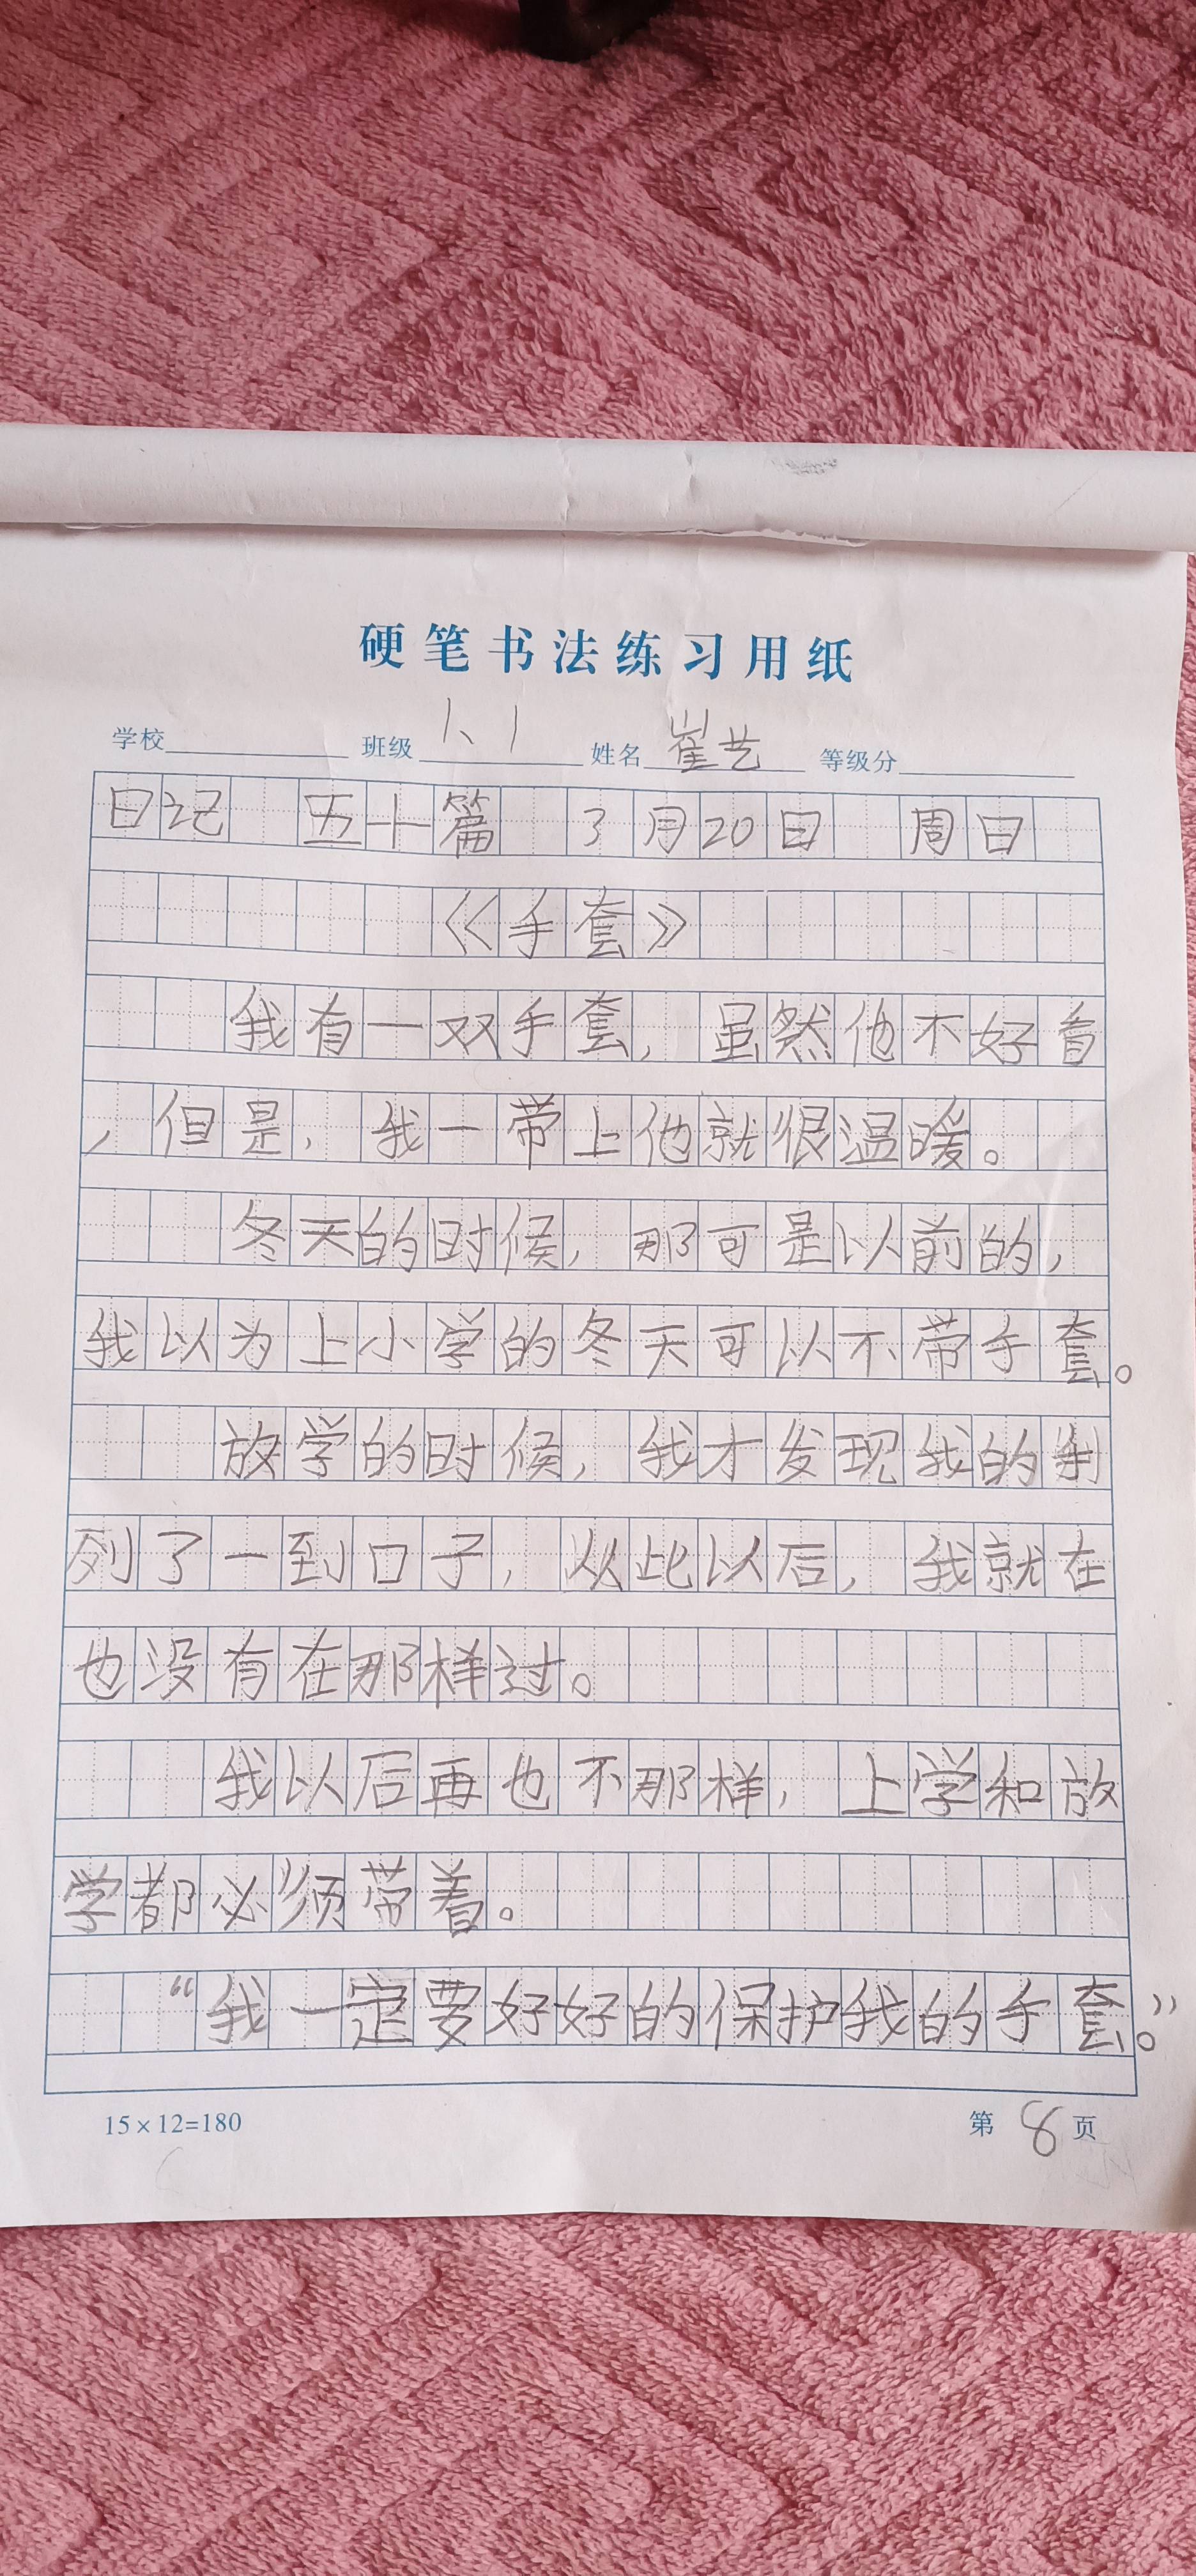 硬笔书法练习用纸
学校 班级 1、1 姓名 崔艺 等级分
日记 五十篇 3月20日 周日
《手套》
我有一双手套，虽然他不好看
，但是，我一带上他就很温暖。
冬天的时候，那可是以前的，
我以为上小学的冬天可以不带手套。
放学的时候，我才发现我的
列了一到口子，从此以后，我就在
也没有在那样过。
我以后再也不那样，上学和放
学都必须带着。
“我一定要好好的保护我的手套。”
15×12=180 第 8 页